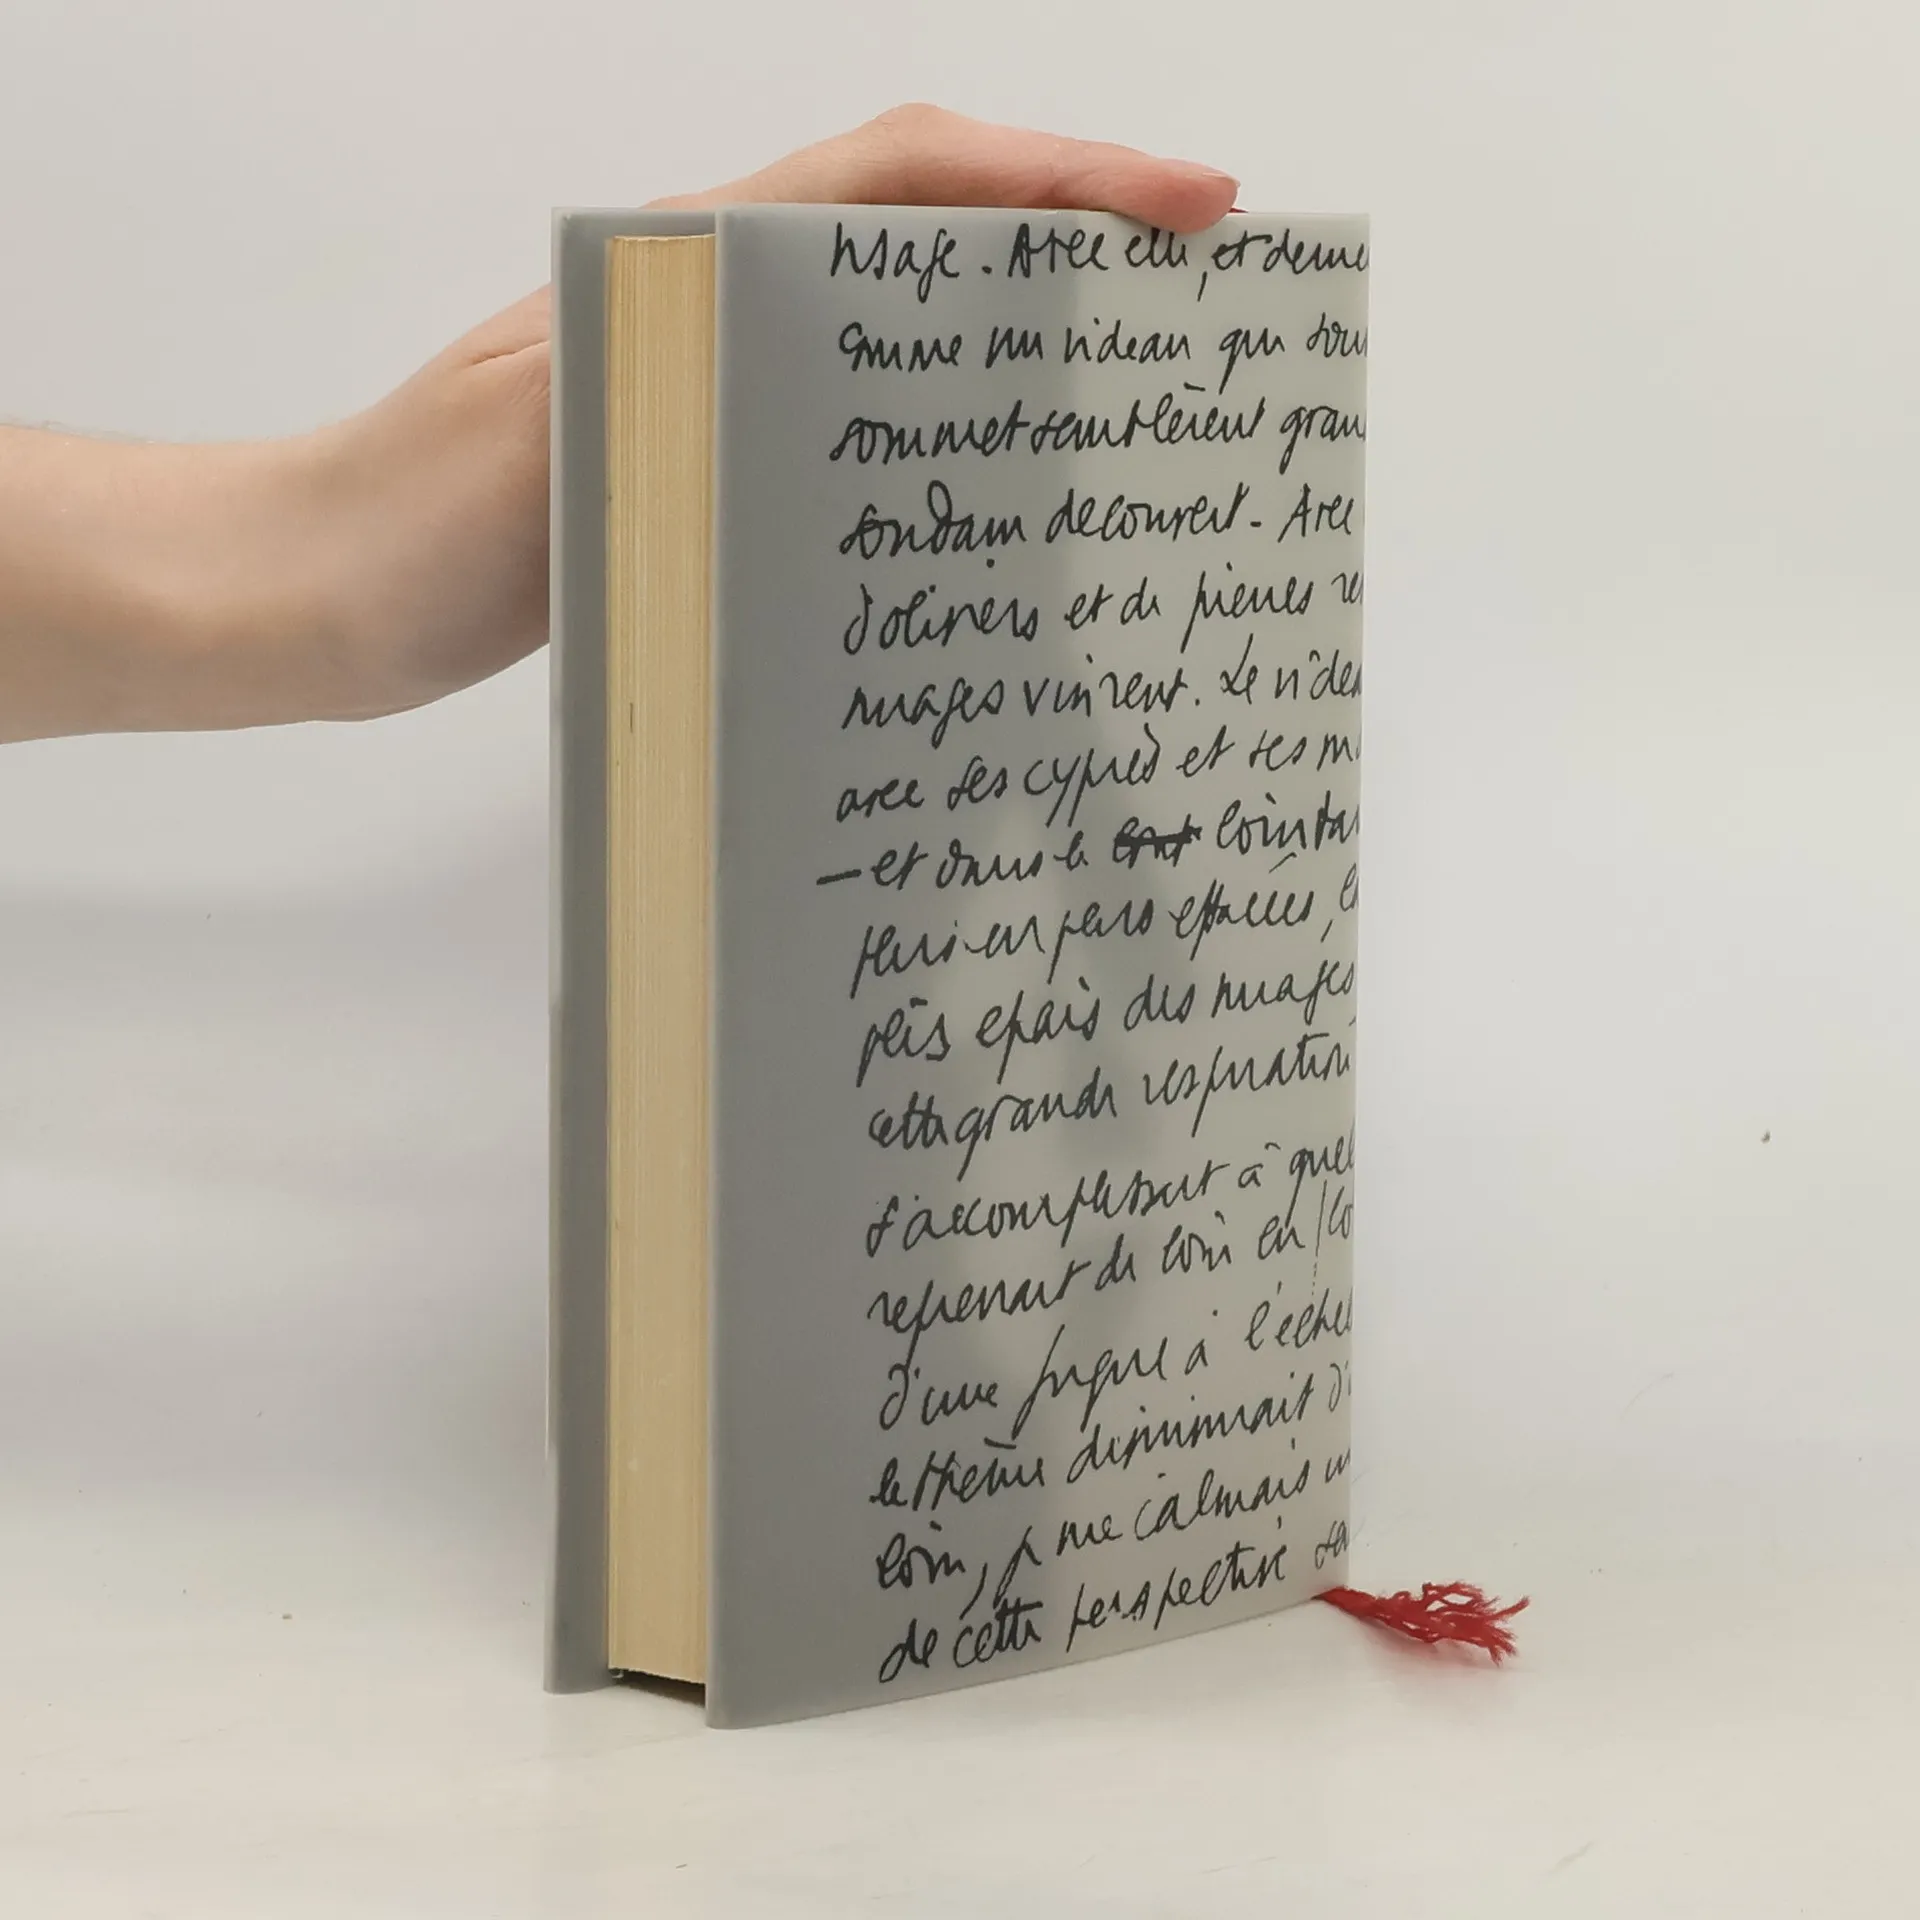 visage. Avec elle, et
comme un rideau qui
sommet semblèrent gran
soudain découvert. Avec
d'oliviers et de pierres
nuages vinrent. Le ridea
avec ses cyprès et ses m
— et dans le lointa
plus en plus effacées,
plis épais des nuages
cette grande respiration
s'accomplissait à quel
reprenait de loin en lo
d'une fugue à l'échel
le thème diminuait d'
loin, je me calmais
de cette perspective sa